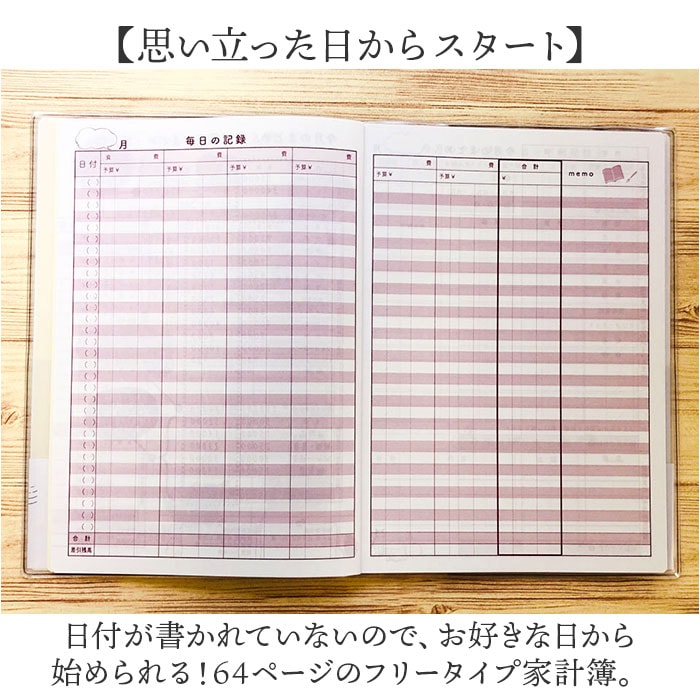 【思い立った日からスタート】
月 毎日の記録
日付 食 費 費 費 費
予算¥ 予算¥ 予算¥ 予算¥
費 費 合計 memo
予算¥ 予算¥ ¥
合計
差引残高
日付が書かれていないので、お好きな日から
始められる！64ページのフリータイプ家計簿。